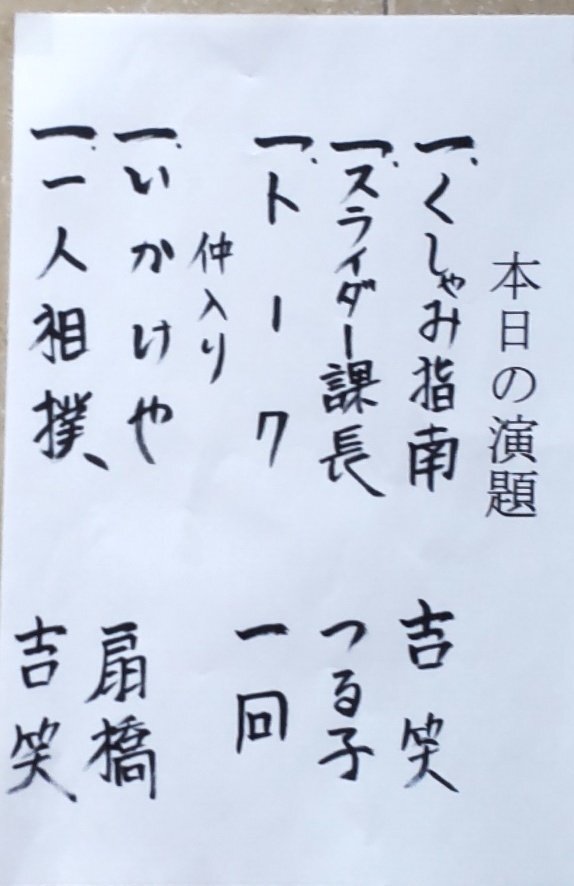 本日の演題
一、くしゃみ指南 吉笑
一、スライダー課長 つる子
一、トーク 一回
仲入り
一、いかけや 扇橋
一、一人相撲 吉笑